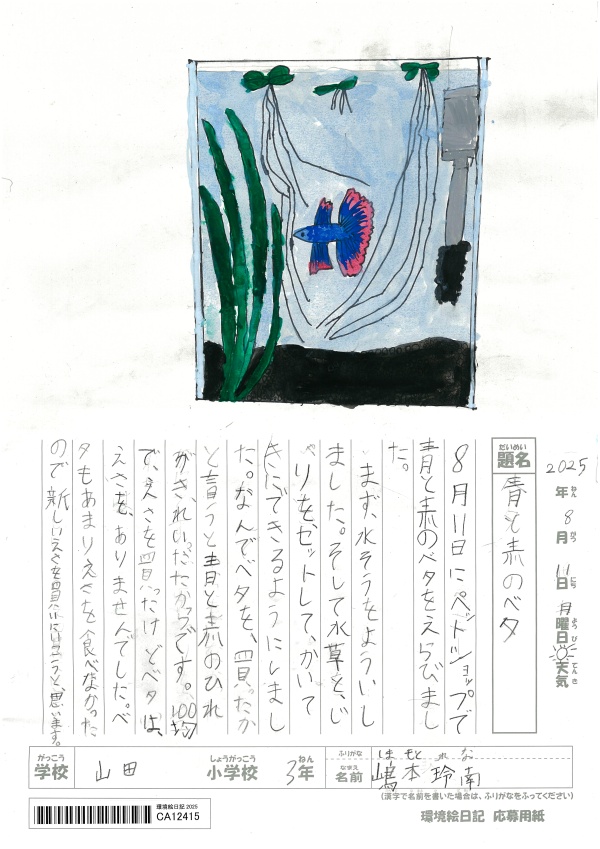 2025年ねん8月がつ11日にち月曜日ようび天気てんき
題名だいめい 青と赤のベタ
8月11日にペットショップで
青と赤のベタをえらびまし
た。
まず、水そうをよういし
ました。そして水草と、じ
ゃりを、セットして、かいて
きにできるようにしまし
た。なんでベタを、買ったか
と言うと青と赤のひれ
がきれいだったからです。100均
で、えさを買ったけどベタは、
えさを、ありませんでした。ベ
タもあまりえさを食べなかった
ので新しいえさを買いにいこうと、思います。
学校がっこう 山田 小学校しょうがっこう 3年ねん
ふりがな しま もと れ な
名前なまえ 嶋本玲南
(漢字で名前を書いた場合は、ふりがなをふってください)
環境絵日記 2025
CA12415
環境絵日記 応募用紙